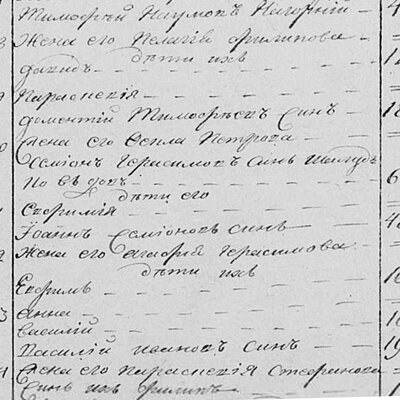 Тимофѣй Наумовъ Нагорний
Жена его Пелагія Филипова
дѣти ихъ
давидъ
Параскевія
доментій Тимофѣевъ Синъ
Жена его Фекла Петрова
Семіонъ Герасимовъ Синъ
дѣти его
Ефимія
Іоаннъ Семіоновъ Синъ
Жена его Агафія Герасимова
дѣти ихъ
Ефримъ
Анна
василій
Василій ивановъ Синъ
Жена его Параскевія Стефанова
Синъ ихъ Филипъ